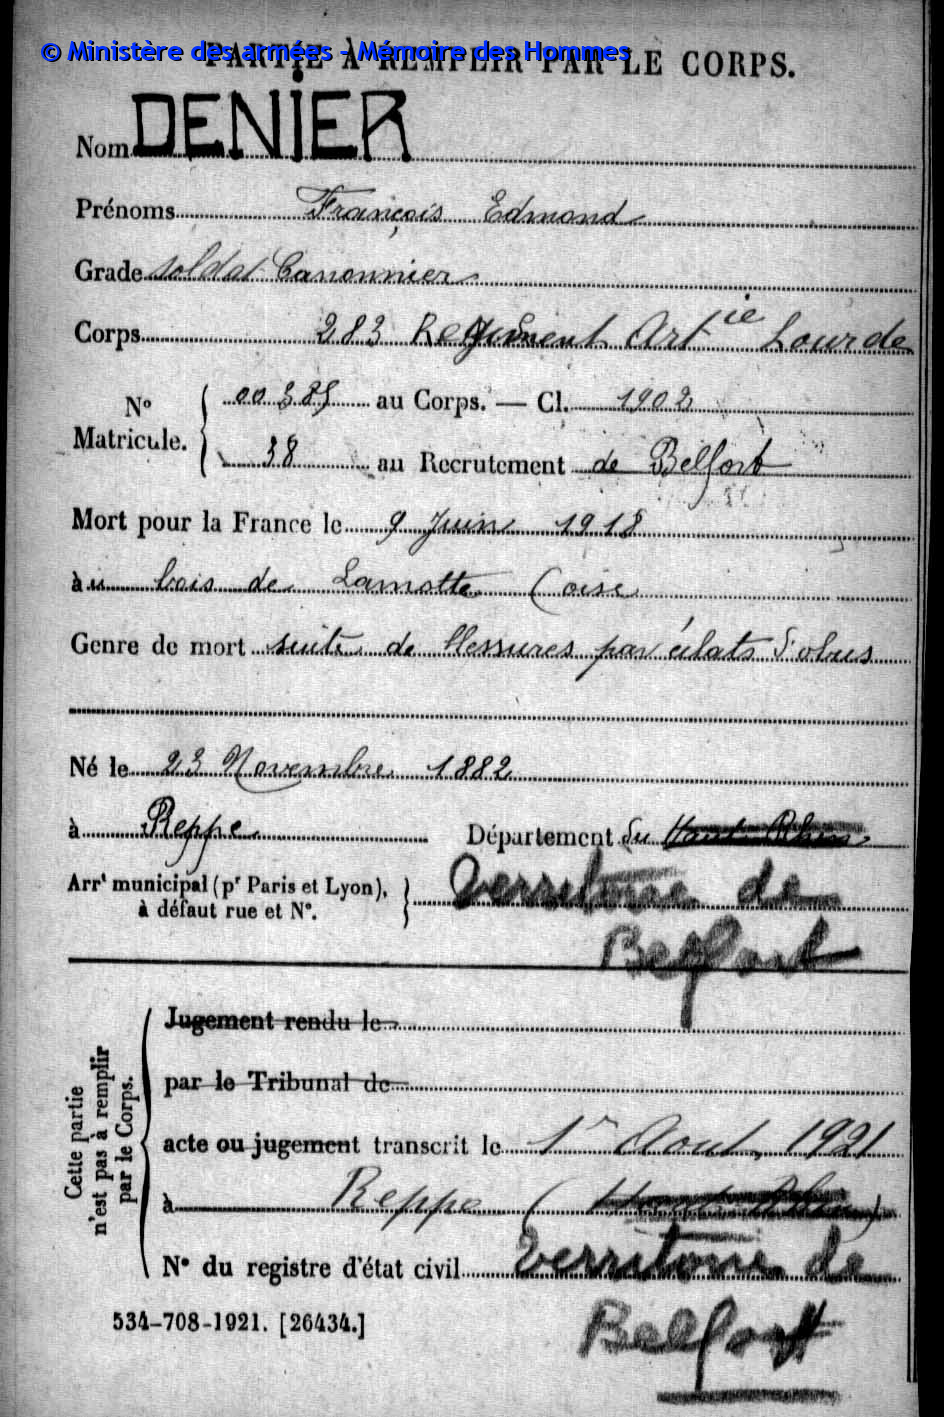 © Ministère des armées - Mémoire des Hommes
PARTIE À REMPLIR PAR LE CORPS.
Nom DENIER
Prénoms François Edmond
Grade soldat Canonnier
Corps 283 Regiment Art ie Lourde
No 00385 au Corps. — Cl. 1902
Matricule. 38 au Recrutement de Belfort
Mort pour la France le 9 Juin 1918
àu bois de Lamotte (oise
Genre de mort suite de blessures par éclats d'obus
Né le 23 Novembre 1882
à Reppe Département du Haut Rhin
Arrt municipal (pr Paris et Lyon), Territoire de
à défaut rue et No. Belfort
Cette partie n'est pas à remplir par le Corps.
Jugement rendu le
par le Tribunal de
acte ou jugement transcrit le 1r Aout 1921
à Reppe (Haut Rhin)
No du registre d'état civil Territoire de
Belfort
534-708-1921. [26434.]